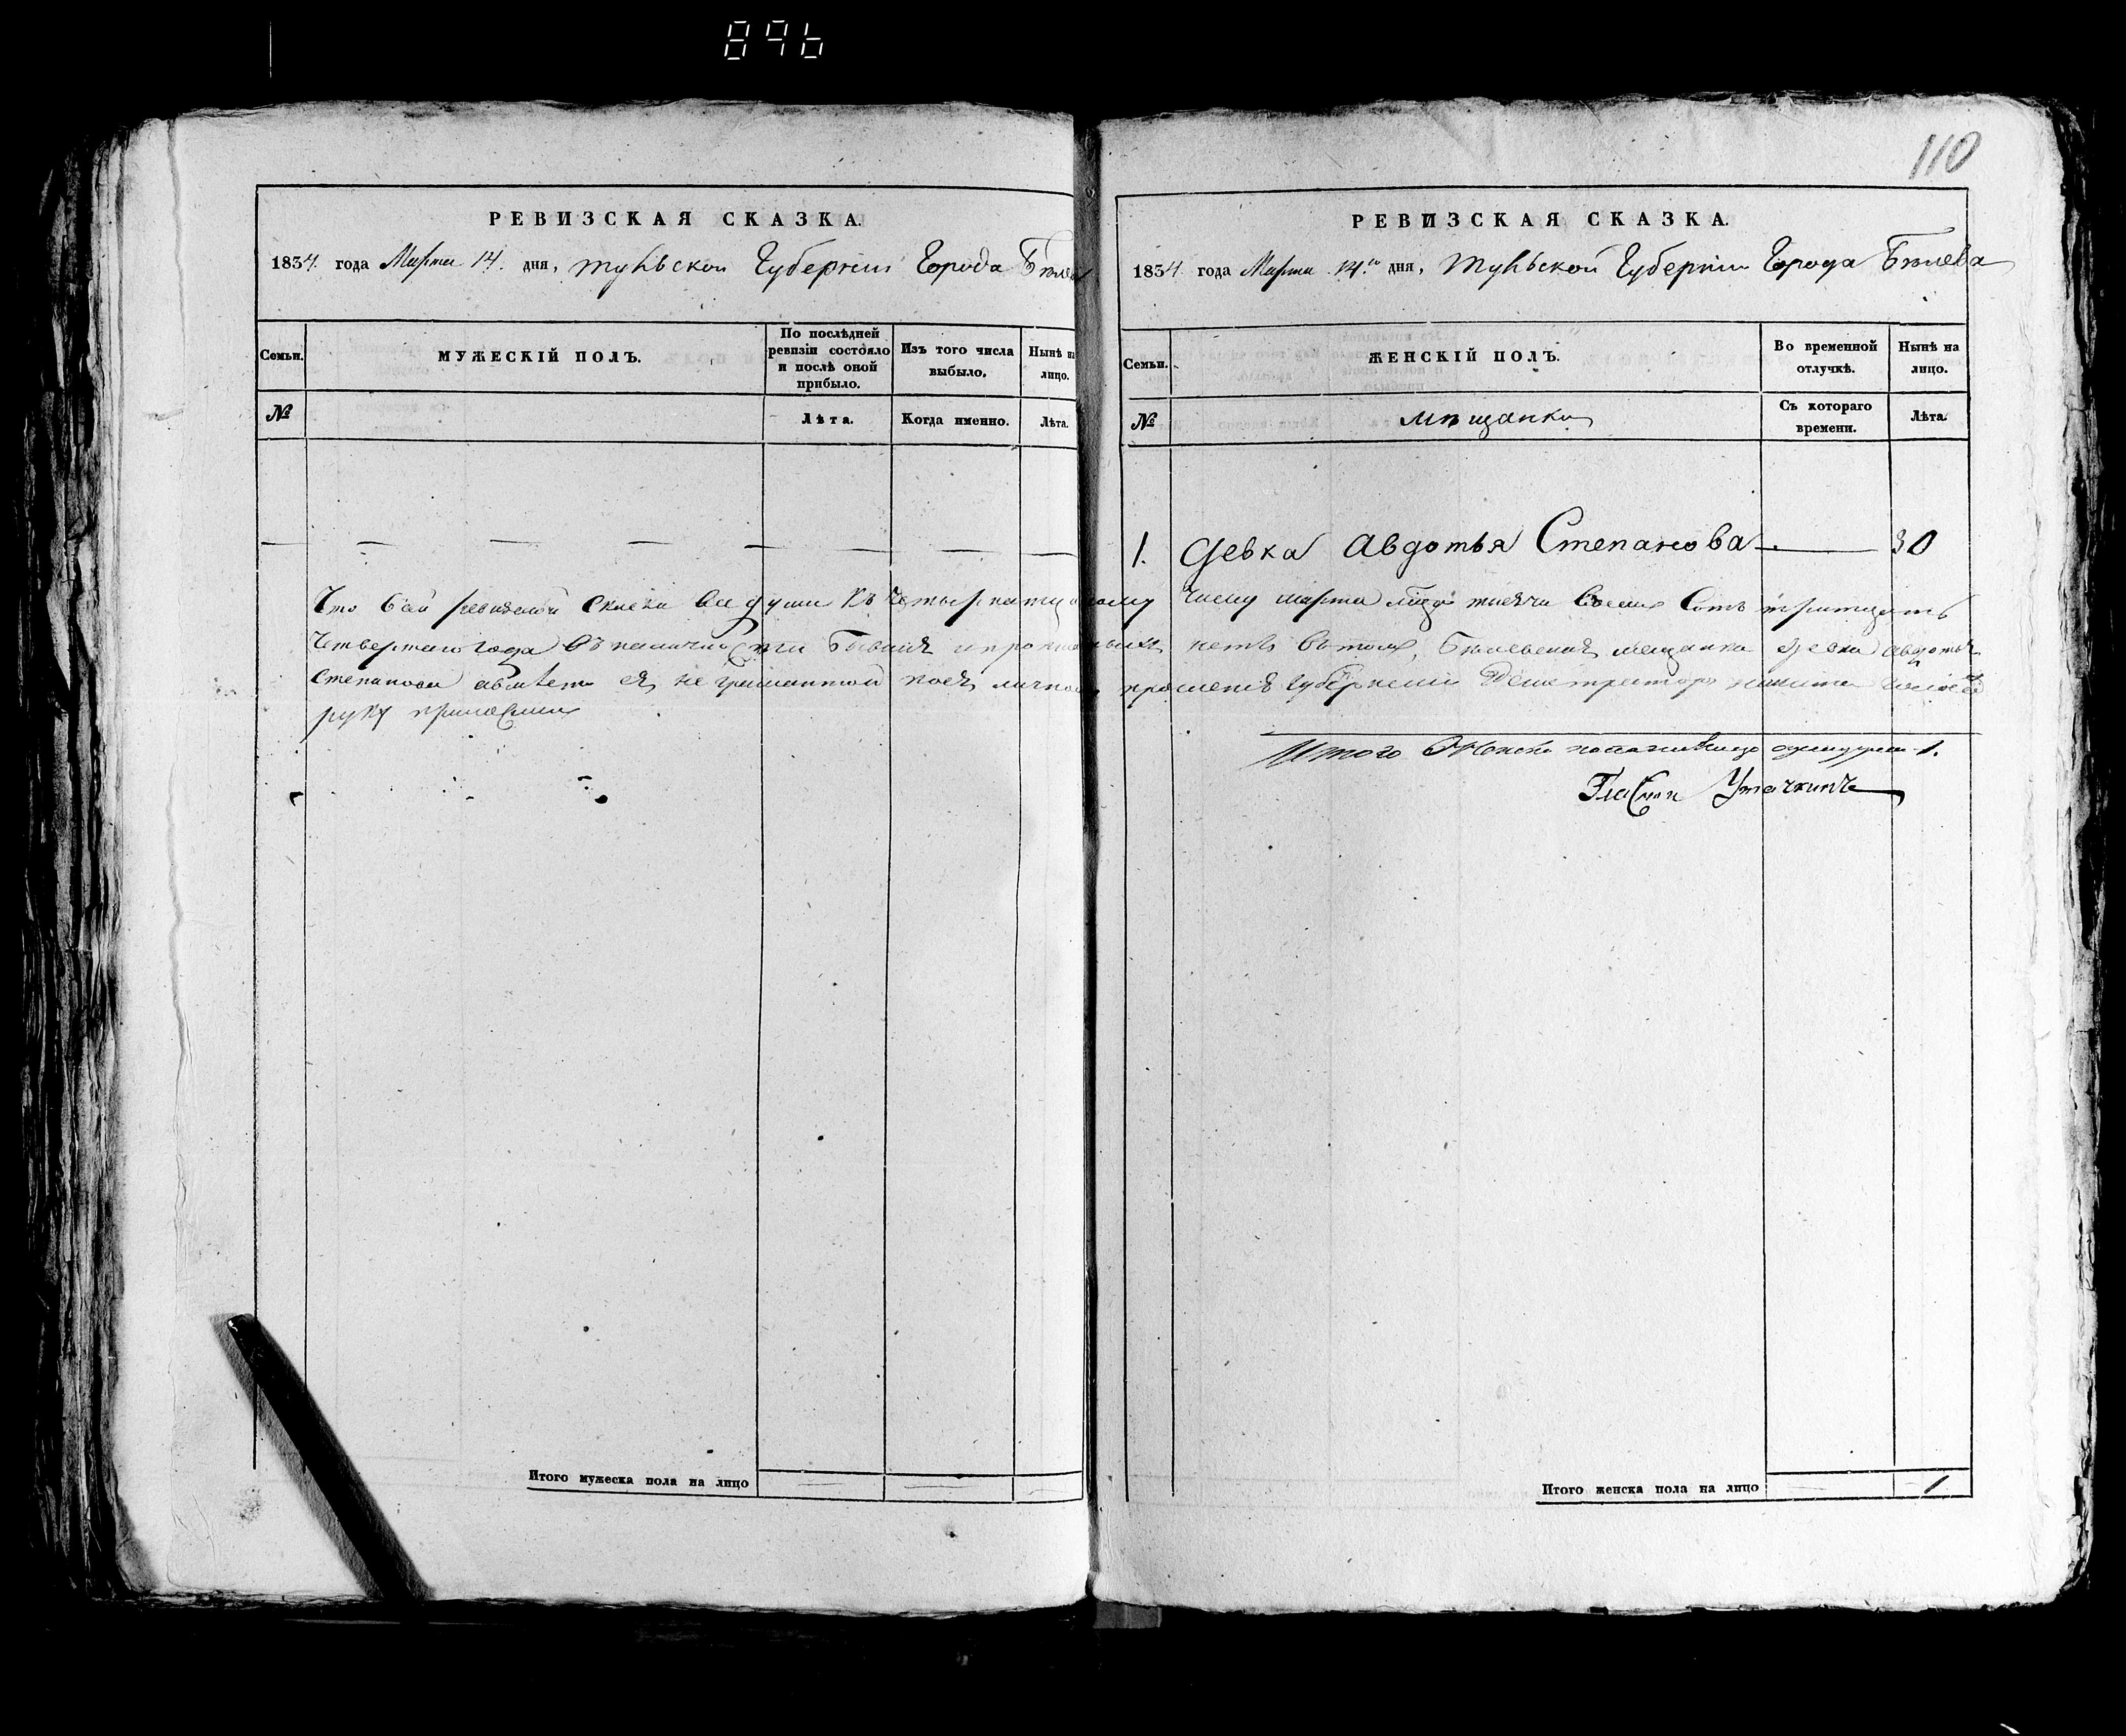 896
110
РЕВИЗСКАЯ СКАЗКА.
1834 года Марта 14. дня, Тульской Губерніи Города Белева
Семьи.
МУЖЕСКІЙ ПОЛЪ.
По послѣдней ревизіи состояло и послѣ оной прибыло.
Изъ того числа выбыло.
Нынѣ на лицо.
№
Лѣта.
Когда именно.
Лѣта.
РЕВИЗСКАЯ СКАЗКА.
1834 года Марта 14.го дня, Тульской Губерніи Города Бѣлева
Семьи.
ЖЕНСКІЙ ПОЛЪ.
Во временной отлучкѣ.
Нынѣ на лицо.
№
мѣщанки
Съ котораго времени.
Лѣта.
1. Девка Авдотья Степанова 30
Что в сей ревизской сказки все души къ четырнатцатому числу марта тысяча восемь сотъ тритцать
четвертаго года въ наличности бывшія нетъ въ томъ, Белевская мещанка девка авдотья
Степанова а вместо ея не грамотной по ея личному прошенію губернскій
руку приложилъ
Итого женска пола на лицо 1.
Гласный Уточкинъ
Итого мужеска пола на лицо
Итого женска пола на лицо 1